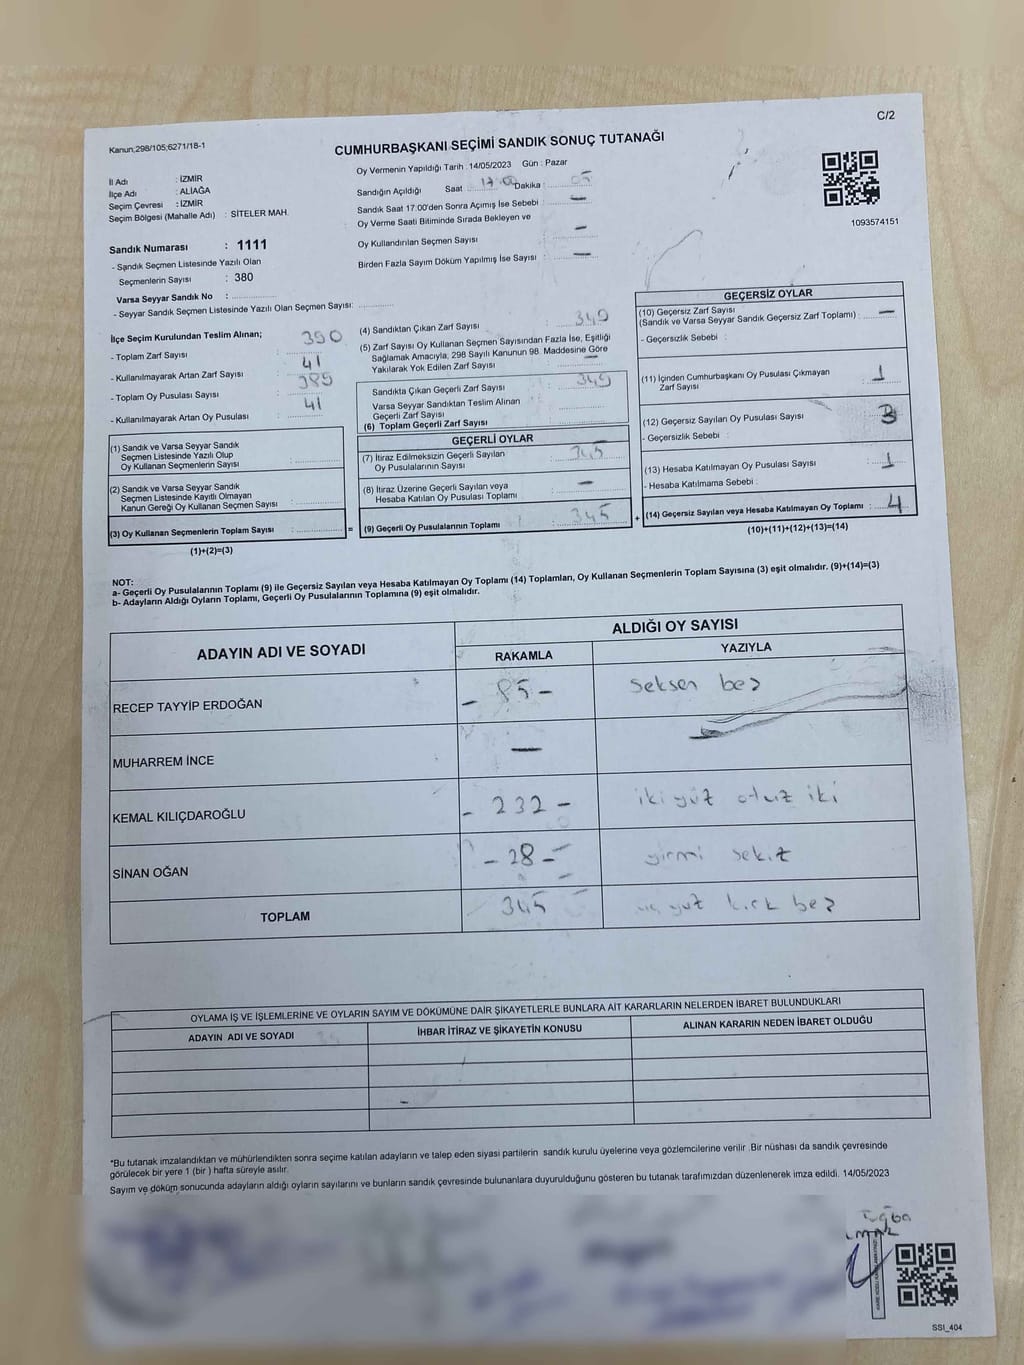 C/2
Kanun;298/105;6271/18-1
CUMHURBAŞKANI SEÇİMİ SANDIK SONUÇ TUTANAĞI
1093574151
İl Adı : İZMİR
İlçe Adı : ALİAĞA
Seçim Çevresi : İZMİR
Seçim Bölgesi (Mahalle Adı) : SİTELER MAH.
Sandık Numarası : 1111
- Sandık Seçmen Listesinde Yazılı Olan
Seçmenlerin Sayısı : 380
Varsa Seyyar Sandık No :
- Seyyar Sandık Seçmen Listesinde Yazılı Olan Seçmen Sayısı:
Oy Vermenin Yapıldığı Tarih : 14/05/2023 Gün : Pazar
Sandığın Açıldığı Saat : 17:00 Dakika : 05
Sandık Saat 17:00'den Sonra Açımış İse Sebebi : —
Oy Verme Saati Bitiminde Sırada Bekleyen ve
Oy Kullandırılan Seçmen Sayısı : —
Birden Fazla Sayım Döküm Yapılmış İse Sayısı : —
İlçe Seçim Kurulundan Teslim Alınan;
- Toplam Zarf Sayısı : 390
- Kullanılmayarak Artan Zarf Sayısı : 41
- Toplam Oy Pusulası Sayısı : 389
- Kullanılmayarak Artan Oy Pusulası : 41
(1) Sandık ve Varsa Seyyar Sandık
Seçmen Listesinde Yazılı Olup
Oy Kullanan Seçmenlerin Sayısı :
(2) Sandık ve Varsa Seyyar Sandık
Seçmen Listesinde Kayıtlı Olmayan
Kanun Gereği Oy Kullanan Seçmen Sayısı :
(3) Oy Kullanan Seçmenlerin Toplam Sayısı : =
(1)+(2)=(3)
(4) Sandıktan Çıkan Zarf Sayısı : 349
(5) Zarf Sayısı Oy Kullanan Seçmen Sayısından Fazla İse, Eşitliği
Sağlamak Amacıyla, 298 Sayılı Kanunun 98. Maddesine Göre
Yakılarak Yok Edilen Zarf Sayısı : —
Sandıkta Çıkan Geçerli Zarf Sayısı : 349
Varsa Seyyar Sandıktan Teslim Alınan
Geçerli Zarf Sayısı :
(6) Toplam Geçerli Zarf Sayısı :
GEÇERLİ OYLAR
(7) İtiraz Edilmeksizin Geçerli Sayılan
Oy Pusulalarının Sayısı : 345
(8) İtiraz Üzerine Geçerli Sayılan veya
Hesaba Katılan Oy Pusulası Toplamı : —
(9) Geçerli Oy Pusulalarının Toplamı : 345 +
GEÇERSİZ OYLAR
(10) Geçersiz Zarf Sayısı
(Sandık ve Varsa Seyyar Sandık Geçersiz Zarf Toplamı) : —
- Geçersizlik Sebebi :
(11) İçinden Cumhurbaşkanı Oy Pusulası Çıkmayan
Zarf Sayısı : 1
(12) Geçersiz Sayılan Oy Pusulası Sayısı : 3
- Geçersizlik Sebebi :
(13) Hesaba Katılmayan Oy Pusulası Sayısı : 1
- Hesaba Katılmama Sebebi :
(14) Geçersiz Sayılan veya Hesaba Katılmayan Oy Toplamı : 4
(10)+(11)+(12)+(13)=(14)
NOT:
a- Geçerli Oy Pusulalarının Toplamı (9) ile Geçersiz Sayılan veya Hesaba Katılmayan Oy Toplamı (14) Toplamları, Oy Kullanan Seçmenlerin Toplam Sayısına (3) eşit olmalıdır. (9)+(14)=(3)
b- Adayların Aldığı Oyların Toplamı, Geçerli Oy Pusulalarının Toplamına (9) eşit olmalıdır.
ADAYIN ADI VE SOYADI
ALDIĞI OY SAYISI
RAKAMLA YAZIYLA
RECEP TAYYİP ERDOĞAN - 85 - seksen beş
MUHARREM İNCE —
KEMAL KILIÇDAROĞLU - 232 - iki yüz otuz iki
SİNAN OĞAN - 28 - yirmi sekiz
TOPLAM 345 üç yüz kırk beş
OYLAMA İŞ VE İŞLEMLERİNE VE OYLARIN SAYIM VE DÖKÜMÜNE DAİR ŞİKAYETLERLE BUNLARA AİT KARARLARIN NELERDEN İBARET BULUNDUKLARI
ADAYIN ADI VE SOYADI İHBAR İTİRAZ VE ŞİKAYETİN KONUSU ALINAN KARARIN NEDEN İBARET OLDUĞU
*Bu tutanak imzalandıktan ve mühürlendikten sonra seçime katılan adayların ve talep eden siyasi partilerin sandık kurulu üyelerine veya gözlemcilerine verilir .Bir nüshası da sandık çevresinde
görülecek bir yere 1 (bir ) hafta süreyle asılır.
Sayım ve döküm sonucunda adayların aldığı oyların sayılarını ve bunların sandık çevresinde bulunanlara duyurulduğunu gösteren bu tutanak tarafımızdan düzenlenerek imza edildi. 14/05/2023
Tuğba
SSI_404